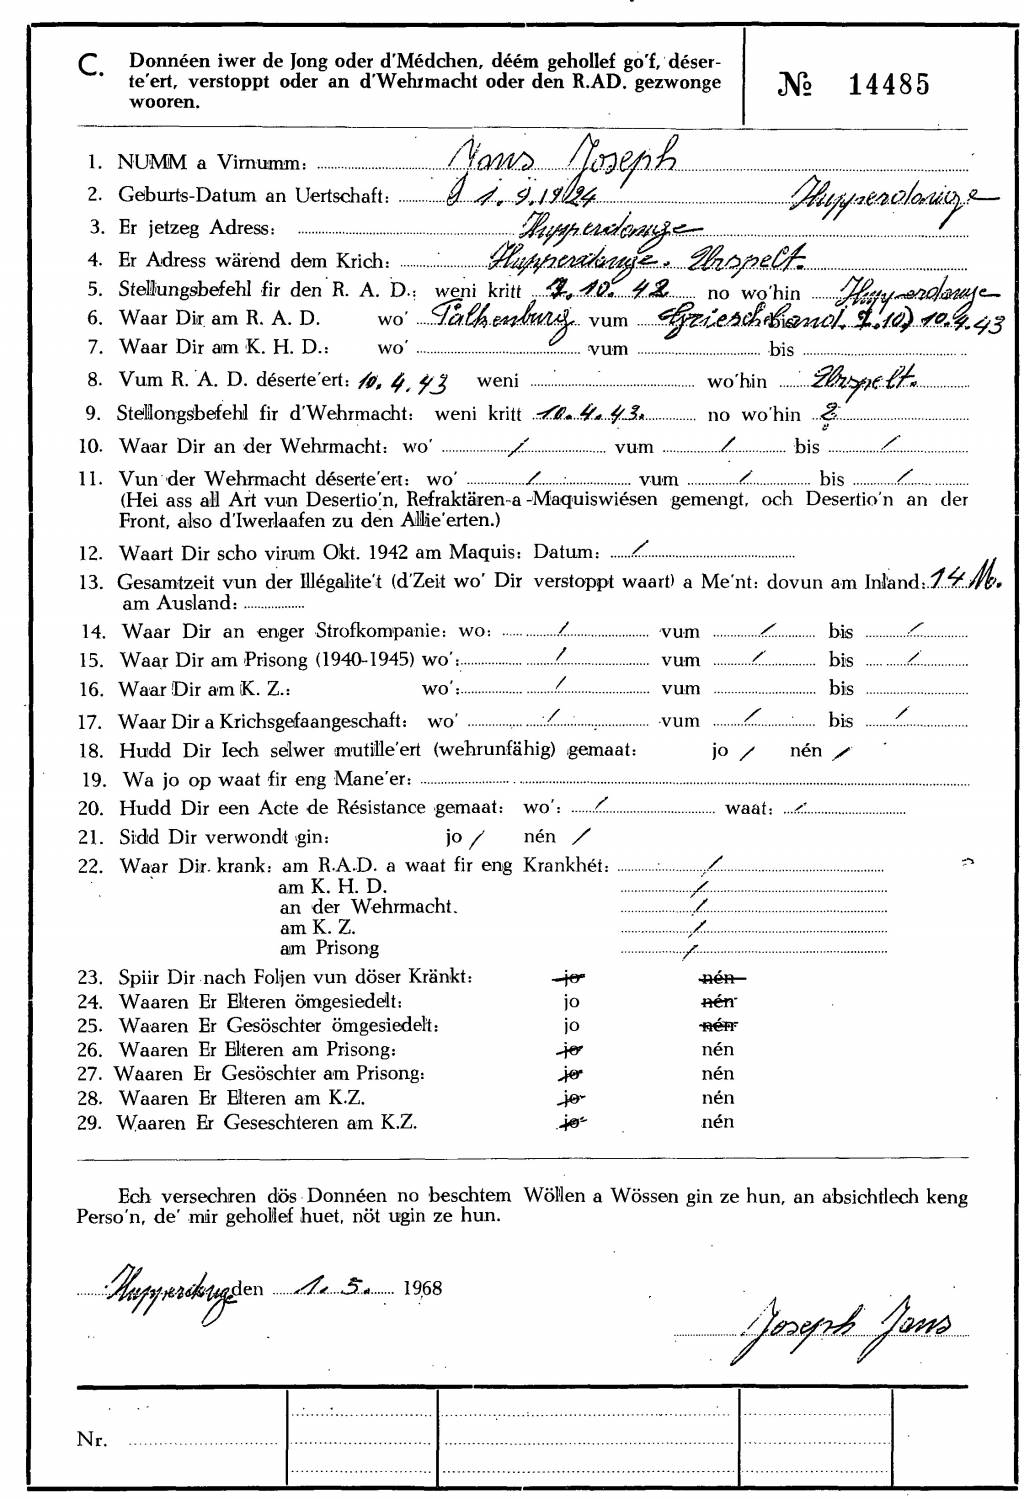 C. Donnéen iwer de Jong oder d'Médchen, déém gehollef go'f, déser-
te'ert, verstoppt oder an d'Wehrmacht oder den R.AD. gezwonge
wooren.
№ 14485
1. NUMM a Virnumm: Jans Joseph
2. Geburts-Datum an Uertschaft: 1. 9. 1924 Hupperdange
3. Er jetzeg Adress: Hupperdange
4. Er Adress wärend dem Krich: Hupperdange. Urspelt.
5. Stellungsbefehl fir den R. A. D.: weni kritt 7. 10. 42 no wo'hin Hupperdange
6. Waar Dir am R. A. D. wo' Falkenburg vum bis 7. 10) 10.4.43
7. Waar Dir am K. H. D.: wo' vum bis
8. Vum R. A. D. déserte'ert: 10. 4. 43 weni wo'hin Urspelt.
9. Stellongsbefehl fir d'Wehrmacht: weni kritt 10. 4. 43. no wo'hin ?
10. Waar Dir an der Wehrmacht: wo' / vum / bis /
11. Vun der Wehrmacht déserte'ert: wo' / vum / bis /
(Hei ass all Art vun Desertio'n, Refraktären-a -Maquiswiésen gemengt, och Desertio'n an der
Front, also d'Iwerlaafen zu den Allie'erten.)
12. Waart Dir scho virum Okt. 1942 am Maquis: Datum: /
13. Gesamtzeit vun der Illégalite't (d'Zeit wo' Dir verstoppt waart) a Me'nt: dovun am Inland: 14 Mo.
am Ausland:
14. Waar Dir an enger Strofkompanie: wo: / vum / bis /
15. Waar Dir am Prisong (1940-1945) wo': / vum / bis /
16. Waar Dir am K. Z.: wo': / vum bis
17. Waar Dir a Krichsgefaangeschaft: wo' / vum / bis /
18. Hudd Dir Iech selwer mutille'ert (wehrunfähig) gemaat: jo / nén /
19. Wa jo op waat fir eng Mane'er:
20. Hudd Dir een Acte de Résistance gemaat: wo': / waat: /
21. Sidd Dir verwondt gin: jo / nén /
22. Waar Dir krank: am R.A.D. a waat fir eng Krankhét: /
am K. H. D. /
an der Wehrmacht. /
am K. Z. /
am Prisong /
23. Spiir Dir nach Foljen vun döser Kränkt: jo nén
24. Waaren Er Elteren ömgesiedelt: jo nén
25. Waaren Er Gesöschter ömgesiedelt: jo nén
26. Waaren Er Elteren am Prisong: jo nén
27. Waaren Er Gesöschter am Prisong: jo nén
28. Waaren Er Elteren am K.Z. jo nén
29. Waaren Er Geseschteren am K.Z. jo nén
Ech versechren dös Donnéen no beschtem Wöllen a Wössen gin ze hun, an absichtlech keng
Perso'n, de' mir gehollef huet, nöt ugin ze hun.
Hupperdange den 1. 5. 1968
Joseph Jans
Nr.